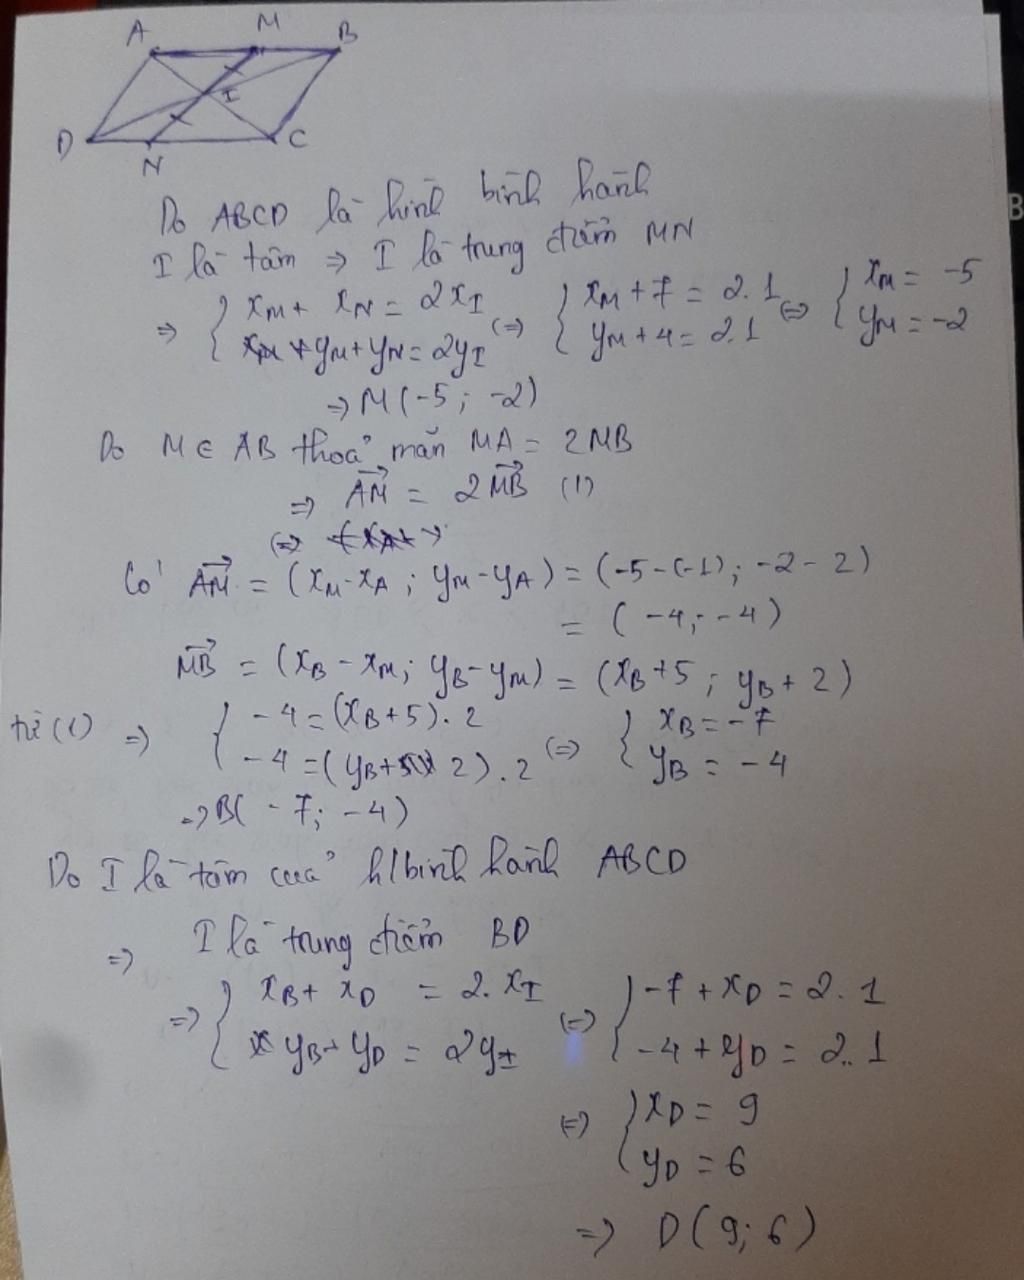 A M B
I
D N C
Do ABCD là hình bình hành
I là tâm => I là trung điểm MN
=> { xM + xN = 2xI <=> { xM + 7 = 2.1 <=> { xM = -5
yM + yN = 2yI yM + 4 = 2.1 yM = -2
=> M(-5; -2)
Do M ∈ AB thoả mãn MA = 2MB
=> AM→ = 2MB→ (1)
<=>
Có AM→ = (xM - xA; yM - yA) = (-5-(-1); -2-2)
= (-4; -4)
MB→ = (xB - xM; yB - yM) = (xB + 5; yB + 2)
từ (1) => { -4 = (xB + 5).2 <=> { xB = -7
-4 = (yB + 2).2 yB = -4
=> B(-7; -4)
Do I là tâm của h/bình hành ABCD
=> I là trung điểm BD
=> { xB + xD = 2.xI <=> { -7 + xD = 2.1
yB + yD = 2yI -4 + yD = 2.1
<=> { xD = 9
yD = 6
=> D(9; 6)
B